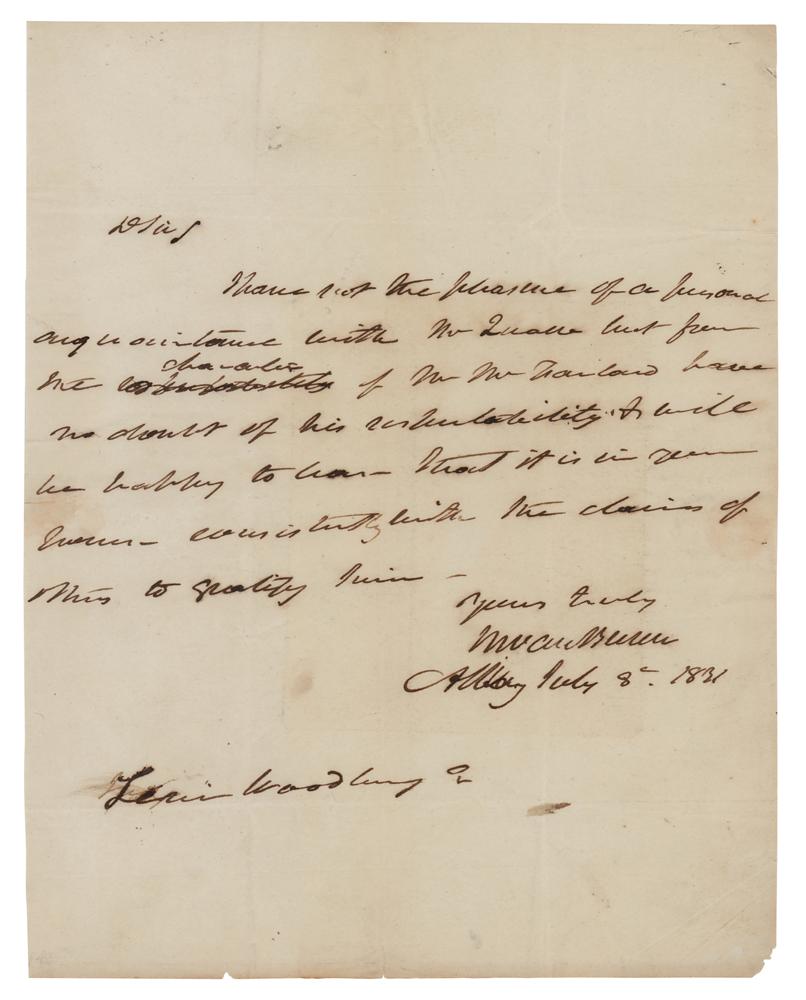 D Sir
I have not the pleasure of a personal
acquaintance with Mr but from
the character of Mr have
no doubt of his respectability & will
be happy to hear that it is in your
power consistently with the claims of
others to gratify him —
Yours truly
M Van Buren
Albany July 8. 1831
Levi Woodbury